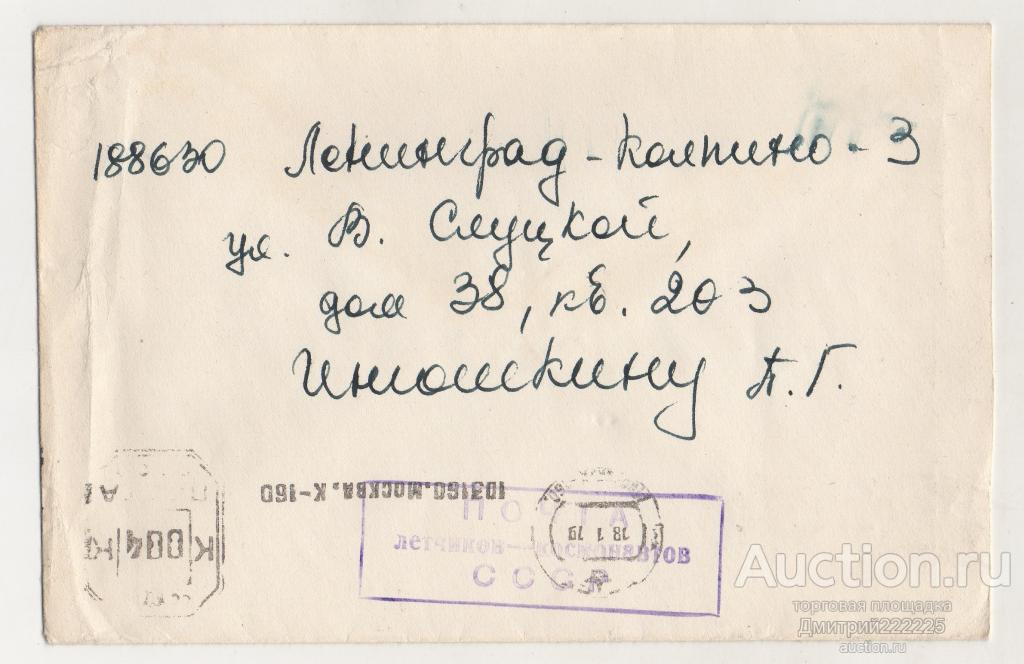 188630 Ленинград - Колпино - 3
ул. В. Слуцкой,
дом 38, кв. 203
Инюшкину П. Г.
103160. МОСКВА, К-160
18 1 79
К 004
ПОЧТА
летчиков-космонавтов
СССР
Auction.ru
торговая площадка
Дмитрий222225
auction.ru